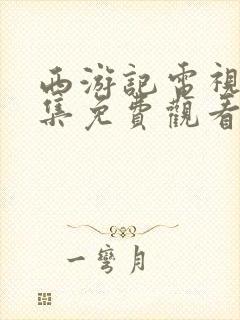 西游記電視
集免費觀看
一彎月